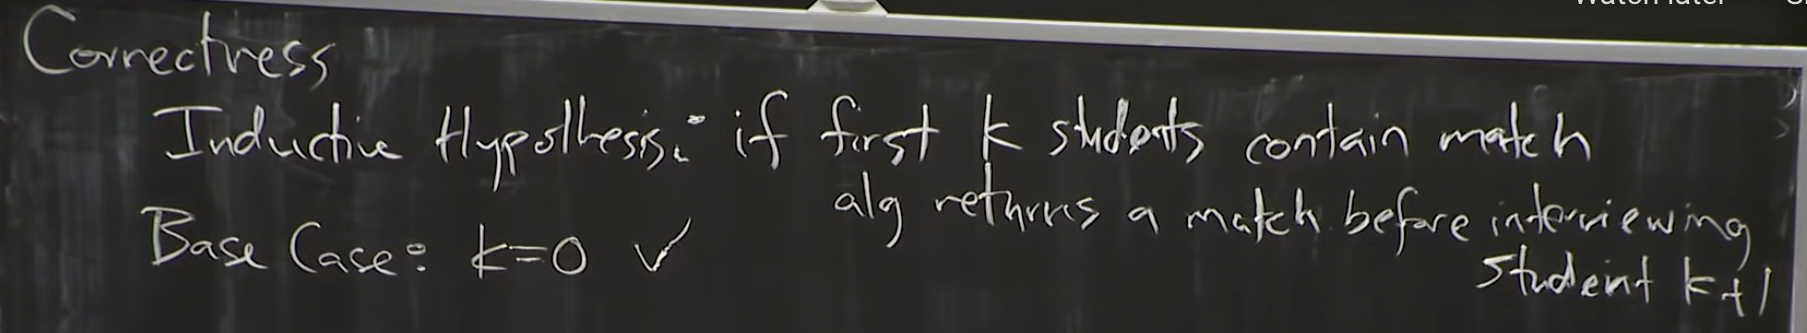 Correctness
Inductive Hypothesis: if first k students contain match
alg returns a match before interviewing
student k+1
Base Case: k=0 ✓